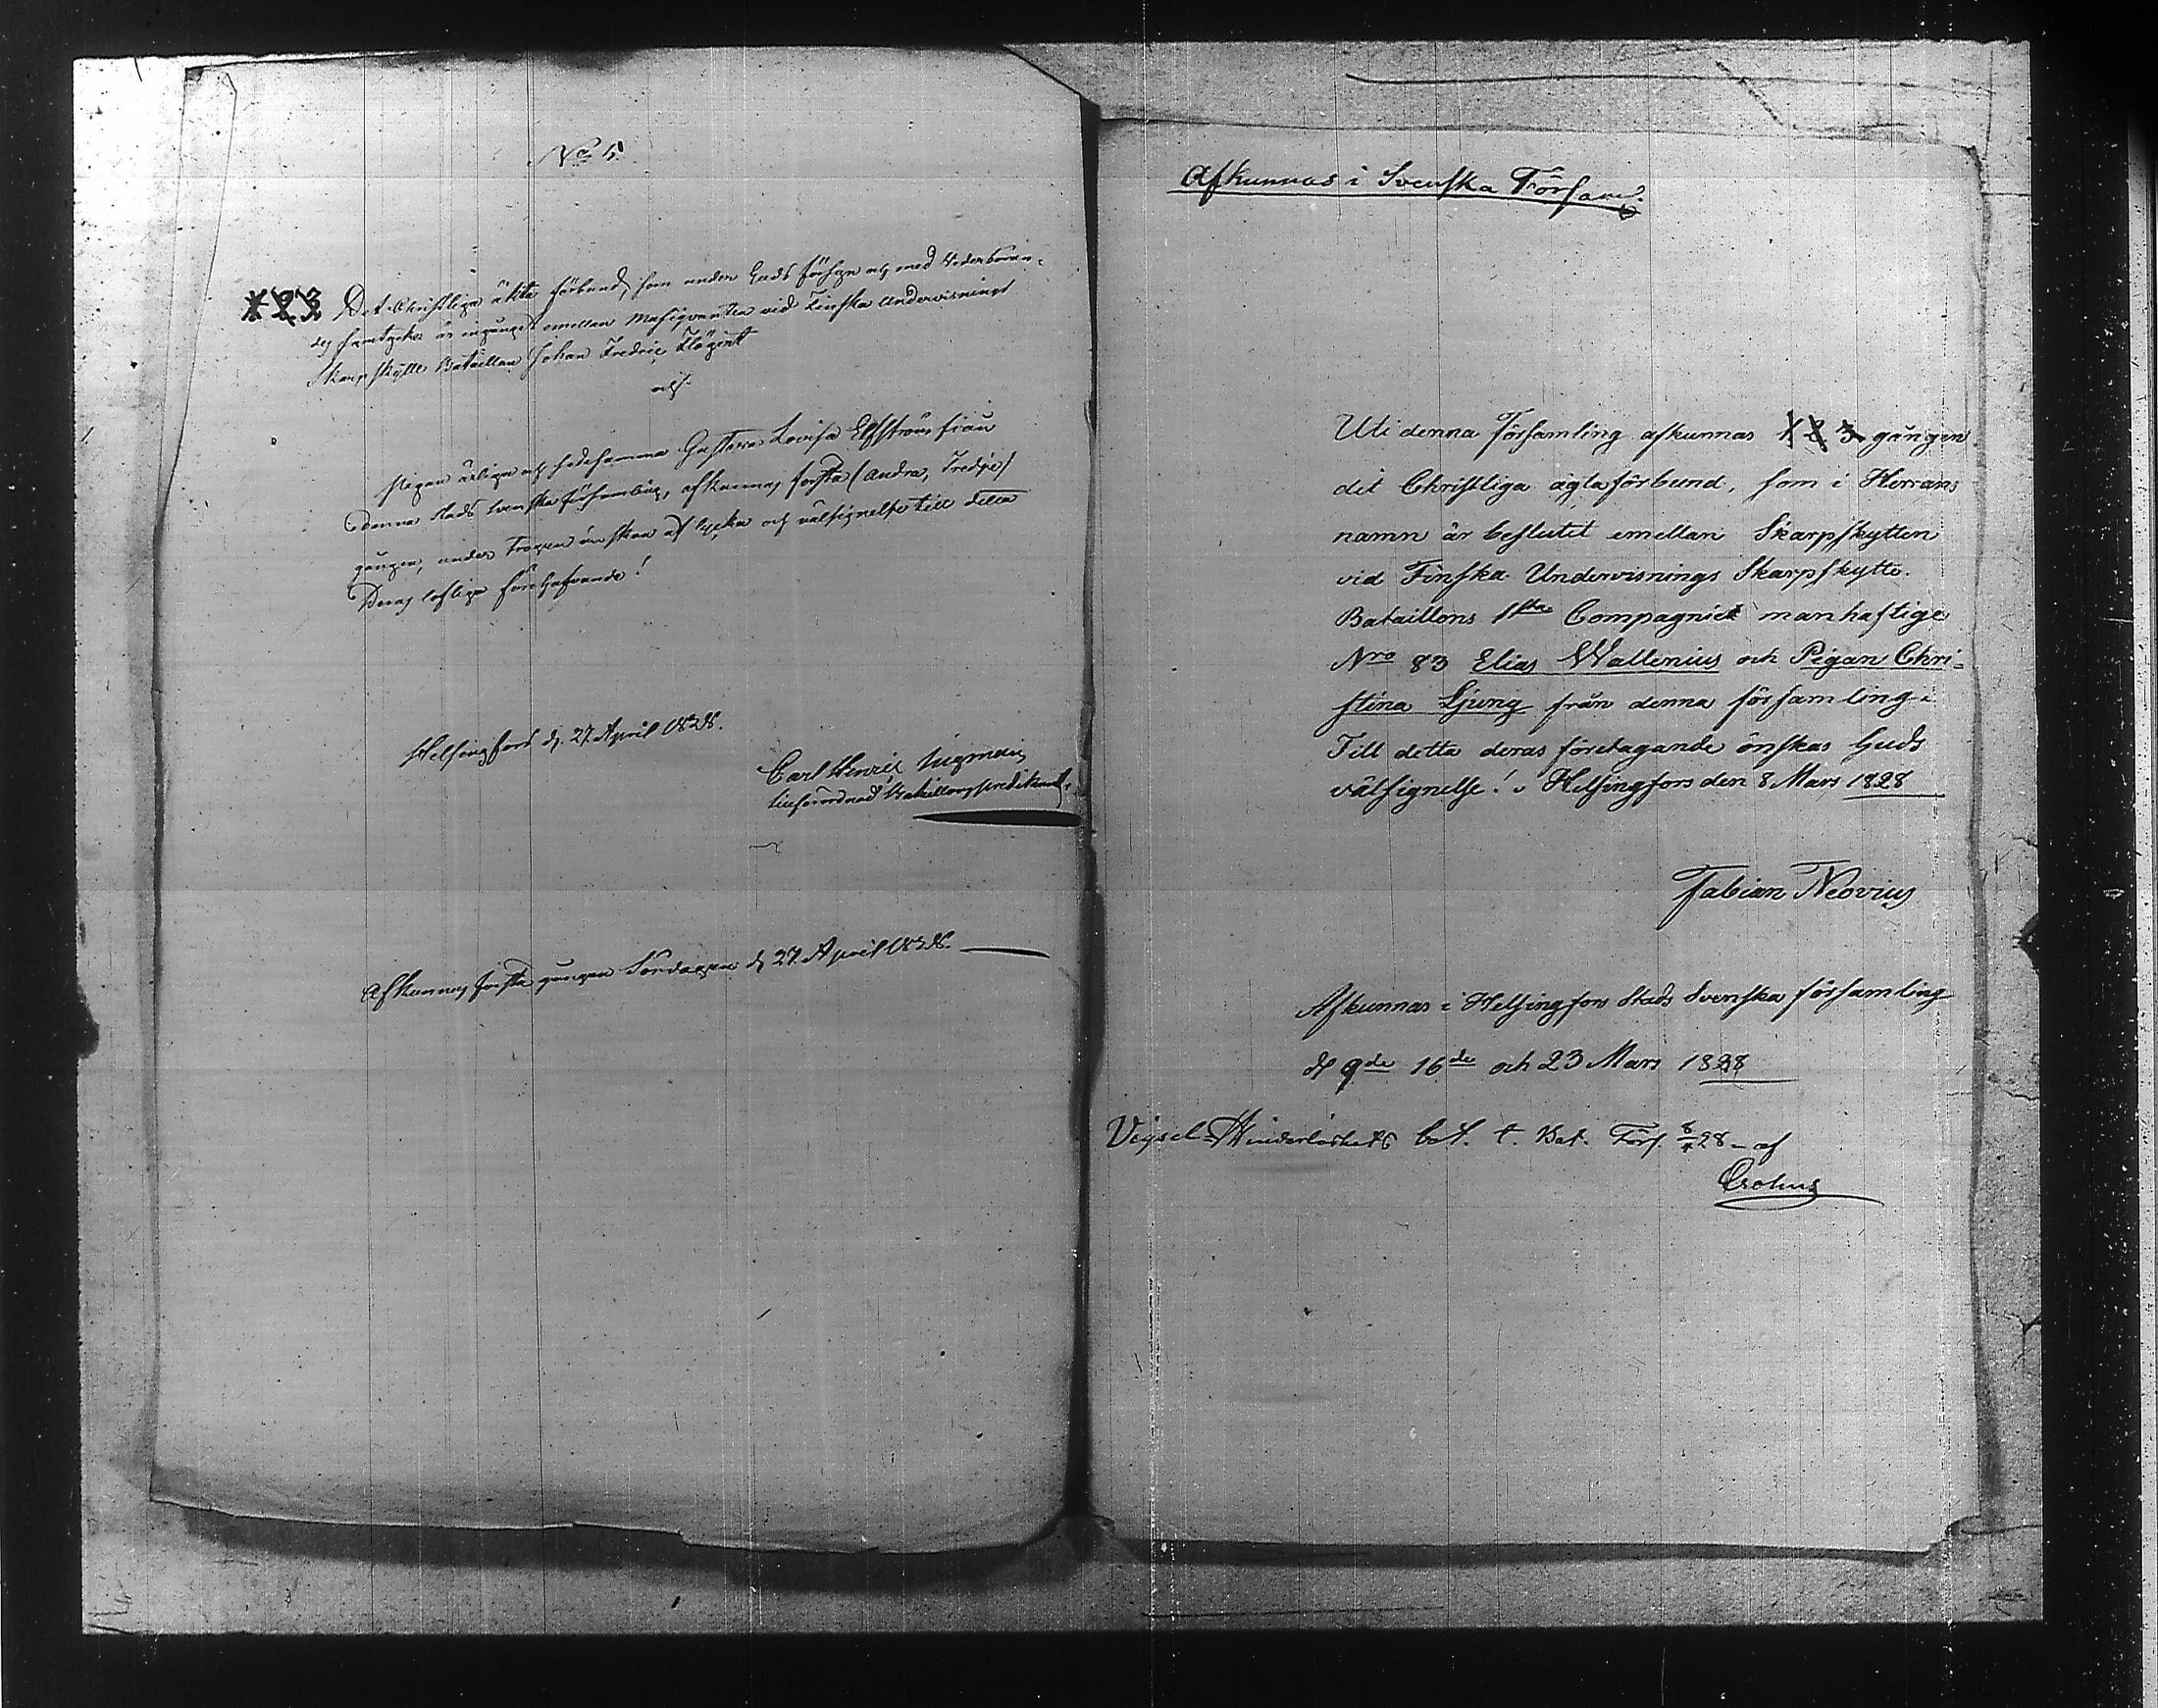 No 5.
1 2 3 Det Christliga äkta förbund, som under Guds försyn och med Vederböran-
des samtycke är ingånget emellan Musiqvanten vid Finska Undervisnings
Skarpskytte Bataillon Johan Fredric Flögint
och
Pigan ärliga och sedesamma Gustava Lovisa Elfström från
denna stads Svenska församling, afkunnas första (andra, Tredje)
gången, under trogen önskan af lycka och välsignelse till detta
Deras lofliga förehafvande!
Helsingfors d. 27 April 1828.
Carl Henric
tillförordnad Bataillons predikant.
Afkunnas första gången Söndagen d. 27. April 1828.
Afkunnas i Svenska Församl.
Uti denna Församling afkunnas 1 2 3 gången
det Christliga ägtaförbund, som i Herrans
namn är beslutet emellan Skarpskytten
vid Finska Undervisnings Skarpskytte-
Bataillons 1sta Compagnie manhaftige
Nro 83 Elias Wallenius och Pigan Chri-
stina Ljung från denna församling.
Till detta deras företagande önskas Guds
välsignelse! Helsingfors den 8 Mars 1828
Fabian Neovius
Afkunnas i Helsingfors Stads Svenska församling
d 9de 16de och 23 Mars 1828
Vigsel-Hinderlöshets bet. t. Bat. Förs. 28 - af
Crohns